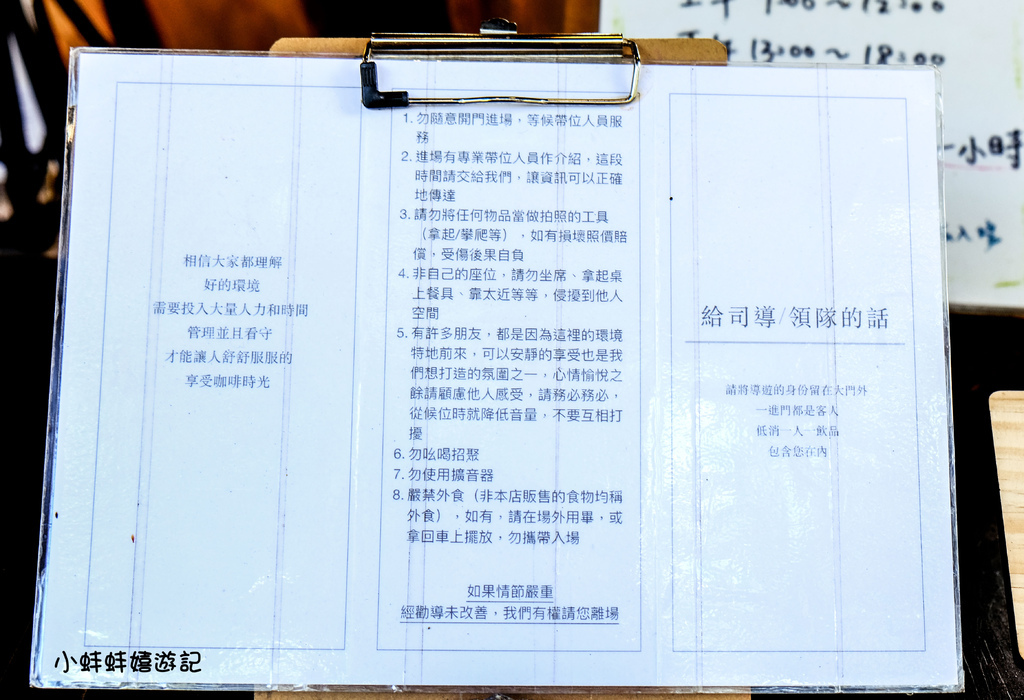 相信大家都理解
好的環境
需要投入大量人力和時間
管理並且看守
才能讓人舒舒服服的
享受咖啡時光
1. 勿隨意開門進場，等候帶位人員服
務
2. 進場有專業帶位人員作介紹，這段
時間請交給我們，讓資訊可以正確
地傳達
3. 請勿將任何物品當做拍照的工具
（拿起/攀爬等），如有損壞照價賠
償，受傷後果自負
4. 非自己的座位，請勿坐席、拿起桌
上餐具、靠太近等等，侵擾到他人
空間
5. 有許多朋友，都是因為這裡的環境
特地前來，可以安靜的享受也是我
們想打造的氛圍之一，心情愉悅之
餘請顧慮他人感受，請務必務必，
從候位時就降低音量，不要互相打
擾
6. 勿吆喝招聚
7. 勿使用擴音器
8. 嚴禁外食（非本店販售的食物均稱
外食），如有，請在場外用畢，或
拿回車上擺放，勿攜帶入場
如果情節嚴重
經勸導未改善，我們有權請您離場
給司導/領隊的話
請將導遊的身份留在大門外
一進門都是客人
低消一人一飲品
包含您在內
13:00～18:00
小時
小蚌蚌嬉遊記